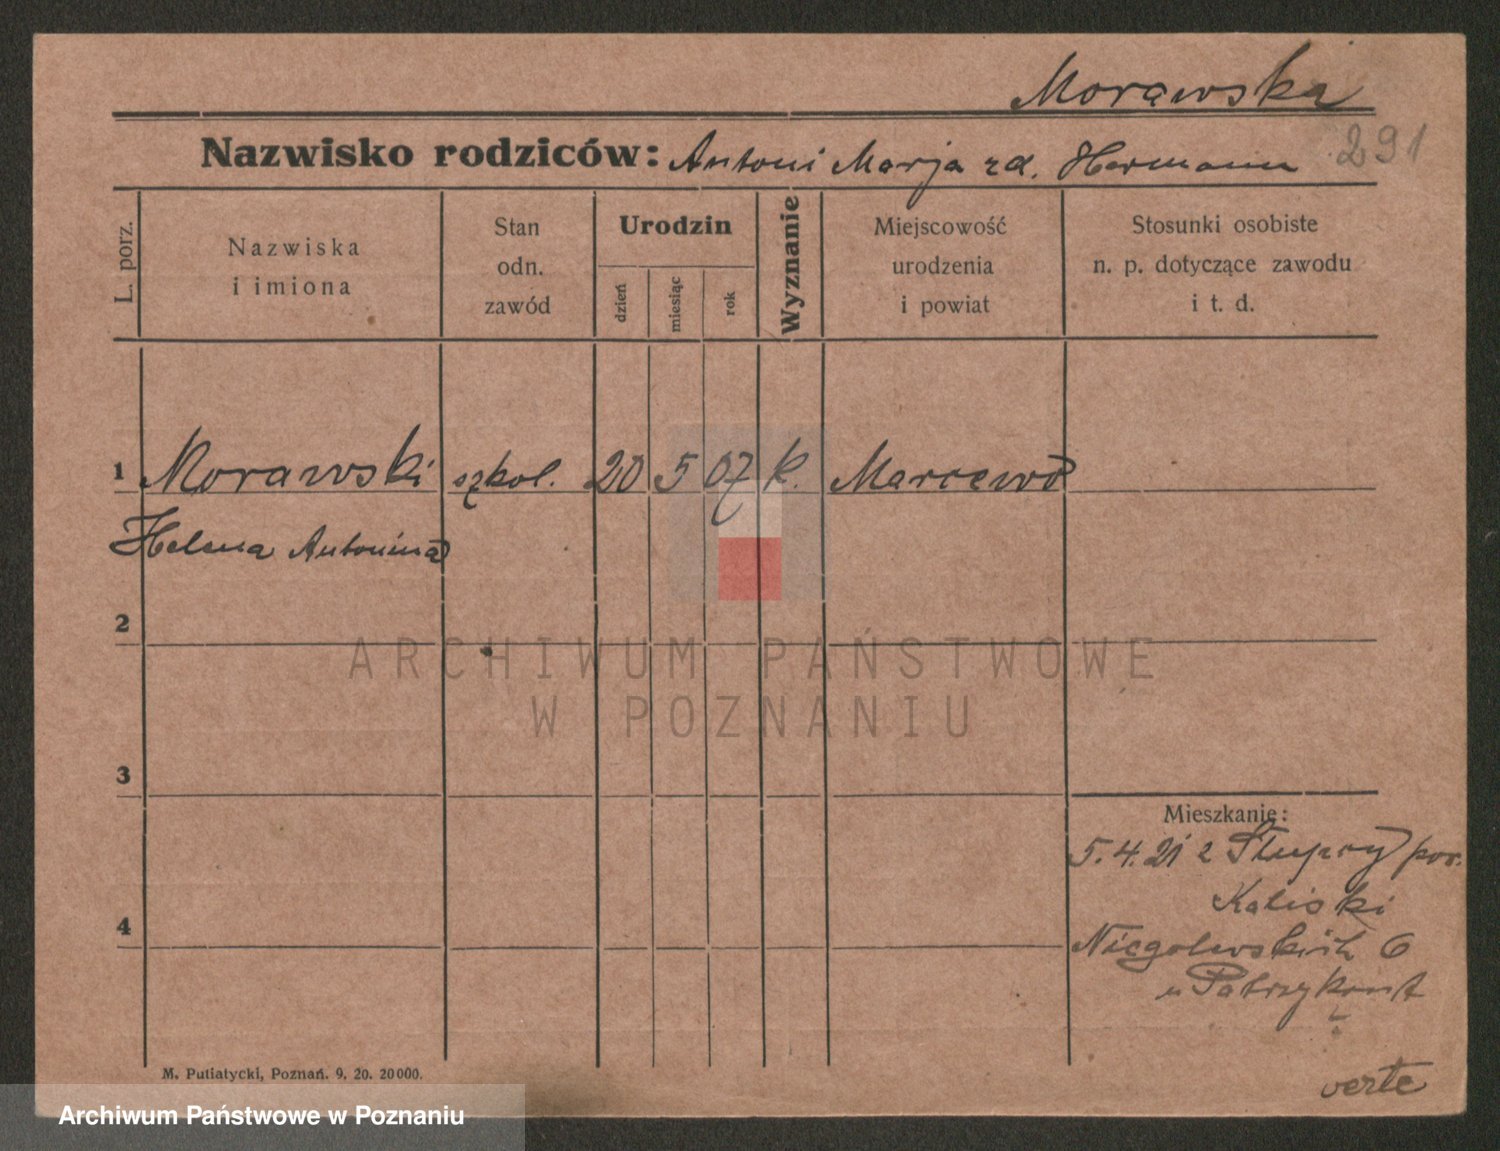 Morawska
Nazwisko rodziców: Antoni Marja zd. Hermann 291
L. porz.
Nazwiska
i imiona
Stan
odn.
zawód
Urodzin
dzień
miesiąc
rok
Wyznanie
Miejscowość
urodzenia
i powiat
Stosunki osobiste
n. p. dotyczące zawodu
i t. d.
1 Morawski szkol. 20 5 07 k. Marcewo
Helena Antonina
2
ARCHIWUM PAŃSTWOWE
W POZNANIU
3
Mieszkanie:
5.4.21 z Słupcy pow.
Kaliski
4
Niegolewskich 6
u Patrzykont
verte
M. Putiatycki, Poznań. 9. 20. 20000.
Archiwum Państwowe w Poznaniu